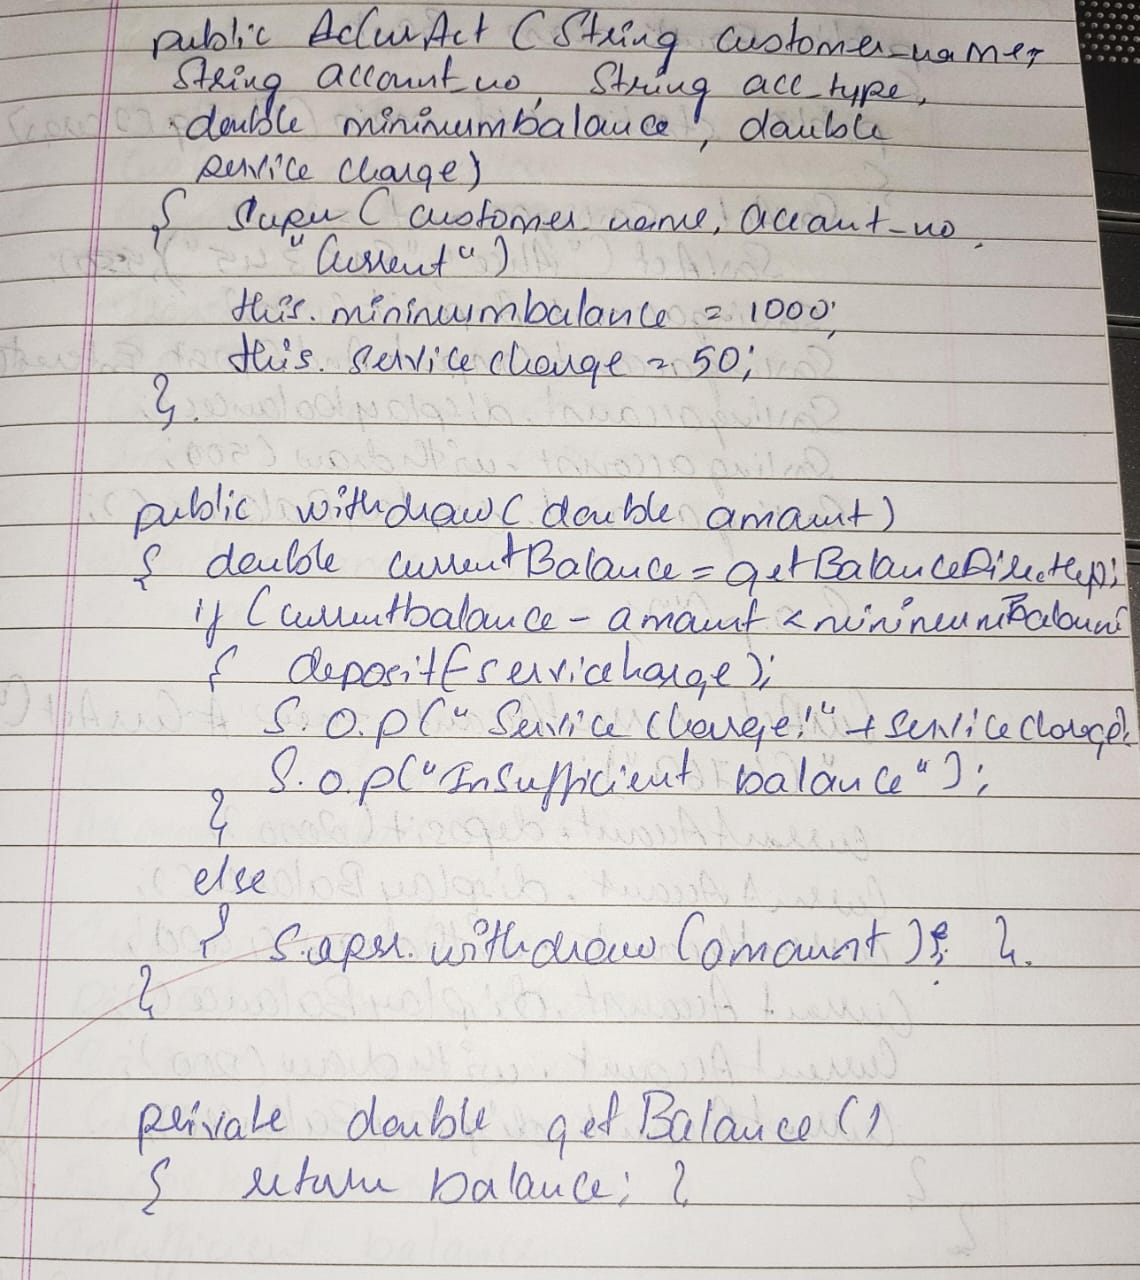 public AcCurAct ( String customer_name,
String account_no, String acc_type,
double minimumbalance, double
service charge)
{ super ( customer_name, account_no,
"Current")
this. minimumbalance = 1000;
this. service charge = 50;
}.
public withdraw ( double amount)
{ double currentBalance = getBalanceDirectly();
if (currentbalance - amount < minimumBalance
{ deposit(-servicecharge);
S.O.p(" Service Charge!" + service charge);
S.O.p("Insufficient balance");
}
else
{ super. withdraw (amount); }.
}
private double getBalance()
{ return balance; }